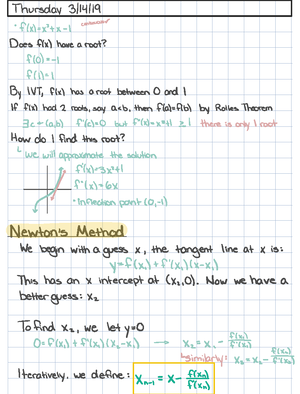 Thursday 3/14/19
· f(x)=x³+x-1
Does f(x) have a root?
f(0)=-1
f(1)=1
By IVT, f(x) has a root between 0 and 1
If f(x) had 2 roots, say a<b, then f(a)=f(b) by Rolles Theorem
∃c∈(a,b) f'(c)=0 but f'(x)=x²+1 ≥1 there is only 1 root
How do I find this root?
↳ we will approximate the solution
f'(x)=3x²+1
f"(x)=6x
· Inflection point (0,-1)
Newton's Method
We begin with a guess x, the tangent line at x is:
y=f(x₁)+f'(x₁)(x-x₁)
This has an x intercept at (x₂,0). Now we have a
better guess: x₂
To find x₂, we let y=0
0=f(x₁)+f'(x₁)(x₂-x₁) → x₂=x₁-f(x₁)/f'(x₁)
↳similarly: x₃=x₂-f(x₂)/f'(x₂)
Iteratively, we define: xₙ₋₁=x-f(xₙ)/f'(xₙ)